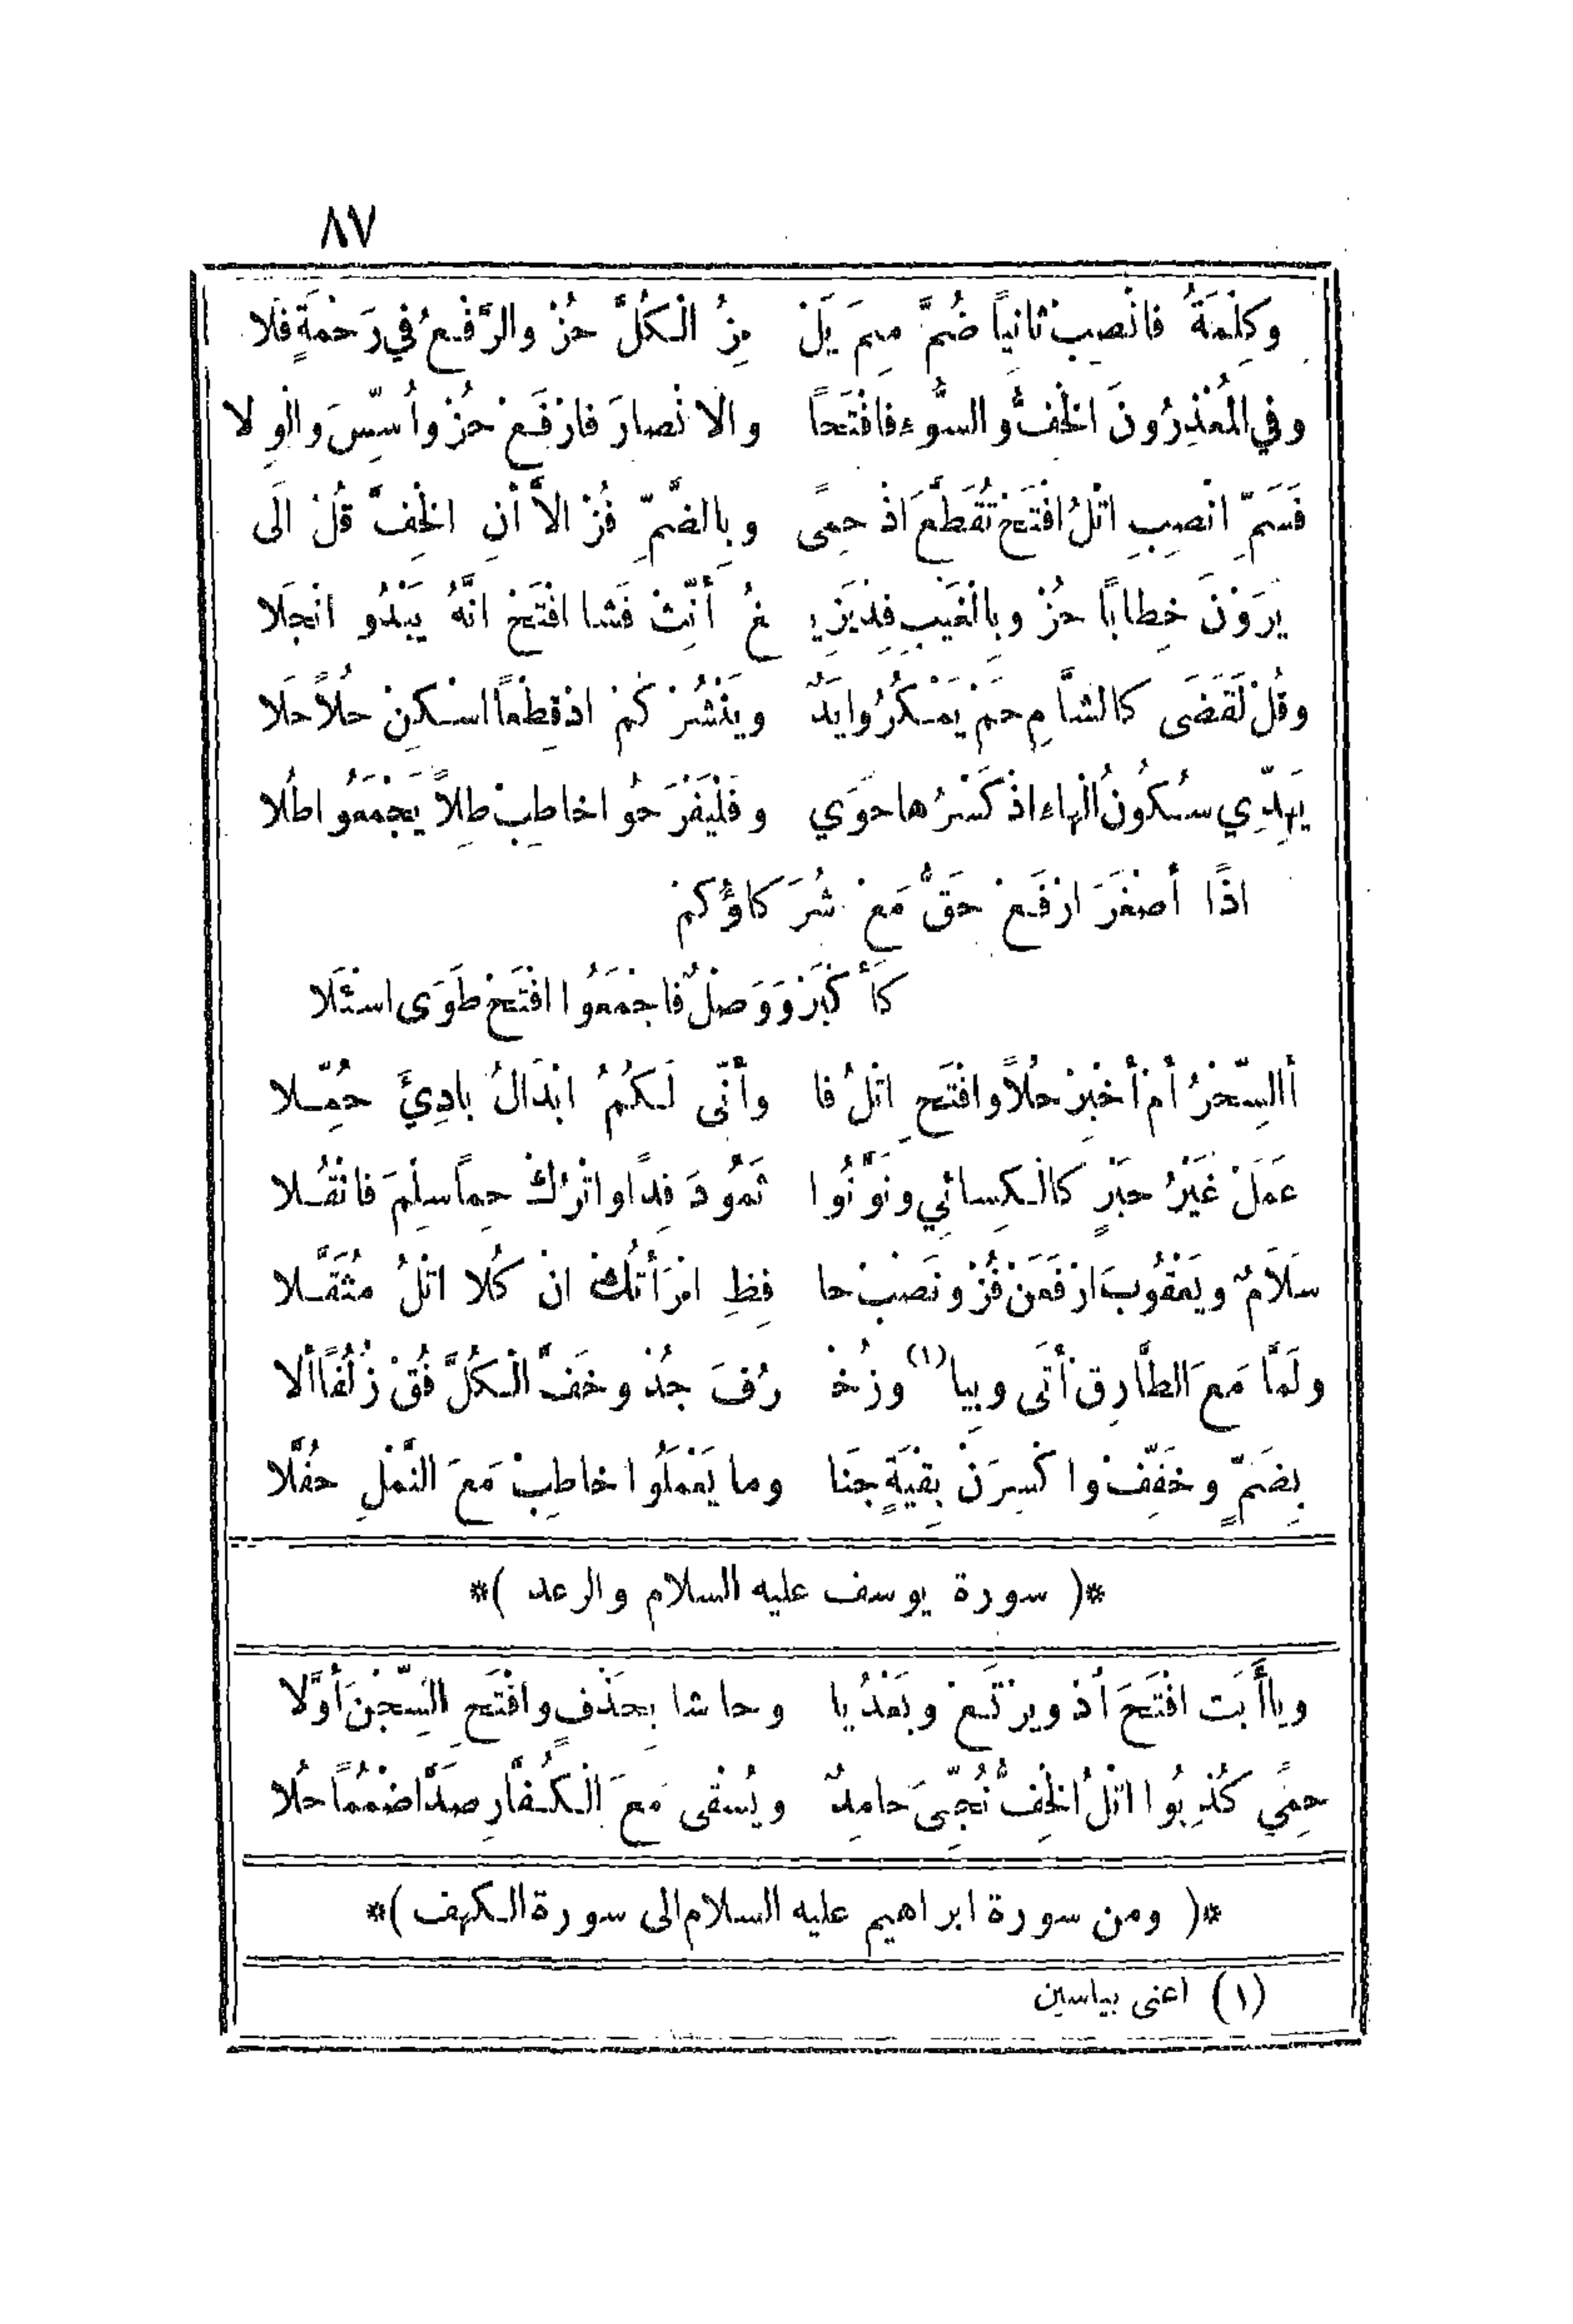 ٨٧
وكِلْمَةُ فانْصِبْ ثانِياً ضُمَّ مِيمَ يَلْ مِزُ الْكُلَّ حُزْ والرَّفْعُ في رَحْمَةٍ فَلا
وفي الْمُعْذِرُونَ الْخِفُّ والسُّوءِ فافْتَحاً والانْصارَ فارْفَعْ حُزْ وأُسِّسَ والْوِلا
فَسَمِّ انْصِبِ اتْلُ افْتَحْ تُقَطَّعَ اذْ حِمًى وبِالضَّمِّ فُزْ الاَّ أَنِ الْخِفُّ قُلْ الَى
يَرَوْنَ خِطابًا حُزْ وبِالْغَيْبِ فِدْ يَزِيـ غُ أَنِّثْ فَشا افْتَحْ انَّهُ يَبْدَؤُ انْجَلا
وقُلْ لَقَضَى كالشَّامِ حَمْ يَمْكُرُوا يَدٌ ويَنْشُرْ كَمْ اذ قِطْعاً اسْكِنْ حُلاً حَلا
يَهِدِّي سُكُونُ الْهاء اذْ كَسْرُها حَوَى وفَلْيَفْرَحُوا خاطِبْ طِلاً يَجْمَعُوا طُلا
اذًا أصْغَرَ ارْفَعْ حَقَّ مَعْ شُرَكاؤُكمْ
كَأَكْبَرْ وَوَصْلٌ فاجْمَعُوا افْتَحْ طَوَى اسْئَلا
أالسِّحْرُ أَمْ أخْبِرْ حُلاً وافْتَحِ اتْلُ فا وأَنِّى لَكُمُ ابْدَالُ بادِئَ حُمِّلا
عَمَلْ غَيْرُ حَبْرٍ كالْكِسائِي ونَوِّنُوا ثَمُودَ فِدًا واتْرُكْ حِماً سِلْمَ فانْقُلا
سَلَامٌ ويَعْقُوبَ ارْفَعَنْ فُزْ ونَصْبُ حا فِظِ امْرَأَتُكْ انْ كُلا اتْلُ مُثَقَّلا
ولَمَّا مَعَ الطَّارِقْ أَتَى وبِيا(١) وزُخْـ رُفَ جُدْ وخَفَّ الْكُلَّ فُقْ زُلُفًا ألا
بِضَمٍّ وخَفِّفْ واكْسِرَنْ بِقِيَةٍ جَنَا وما يَعْمَلُوا خاطِبْ مَعَ النَّمْلِ حُفَّلا
*( سورة يوسف عليه السلام والرعد )*
وياأَبَتَ افْتَحَ أدْ ويرْتَعْ وبَعْدُ يا وحاشا بِحَذْفٍ وافْتَحِ السِّجْنَ أوَّلا
حِمًى كُذِبُوا اتْلُ الْخِفُّ نُجِّىَ حامِدٌ ويُسْقَى مَعَ الْكُفَّارِ صَدَّ اضْمُماً حُلا
*( ومن سورة ابراهيم عليه السلام الى سورة الكهف )*
(١) اعنى بياسين